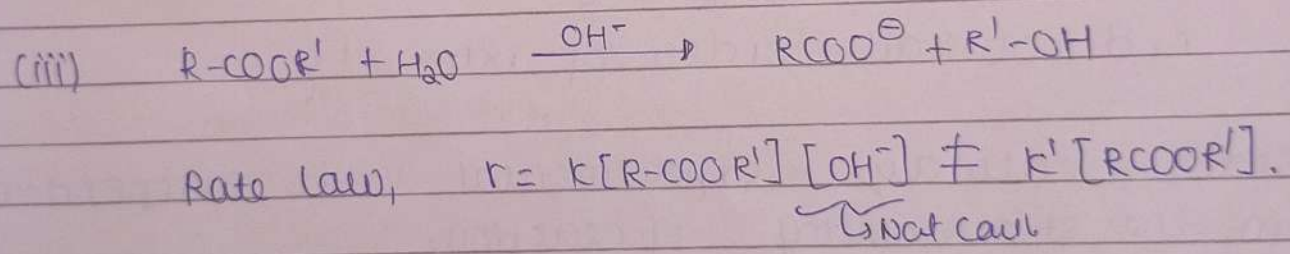 (iii) R-COOR' + H₂O —OH⁻→ RCOO⊖ + R'-OH
Rate law, r = K[R-COOR'] [OH⁻] ≠ K' [RCOOR'].
↳ Not